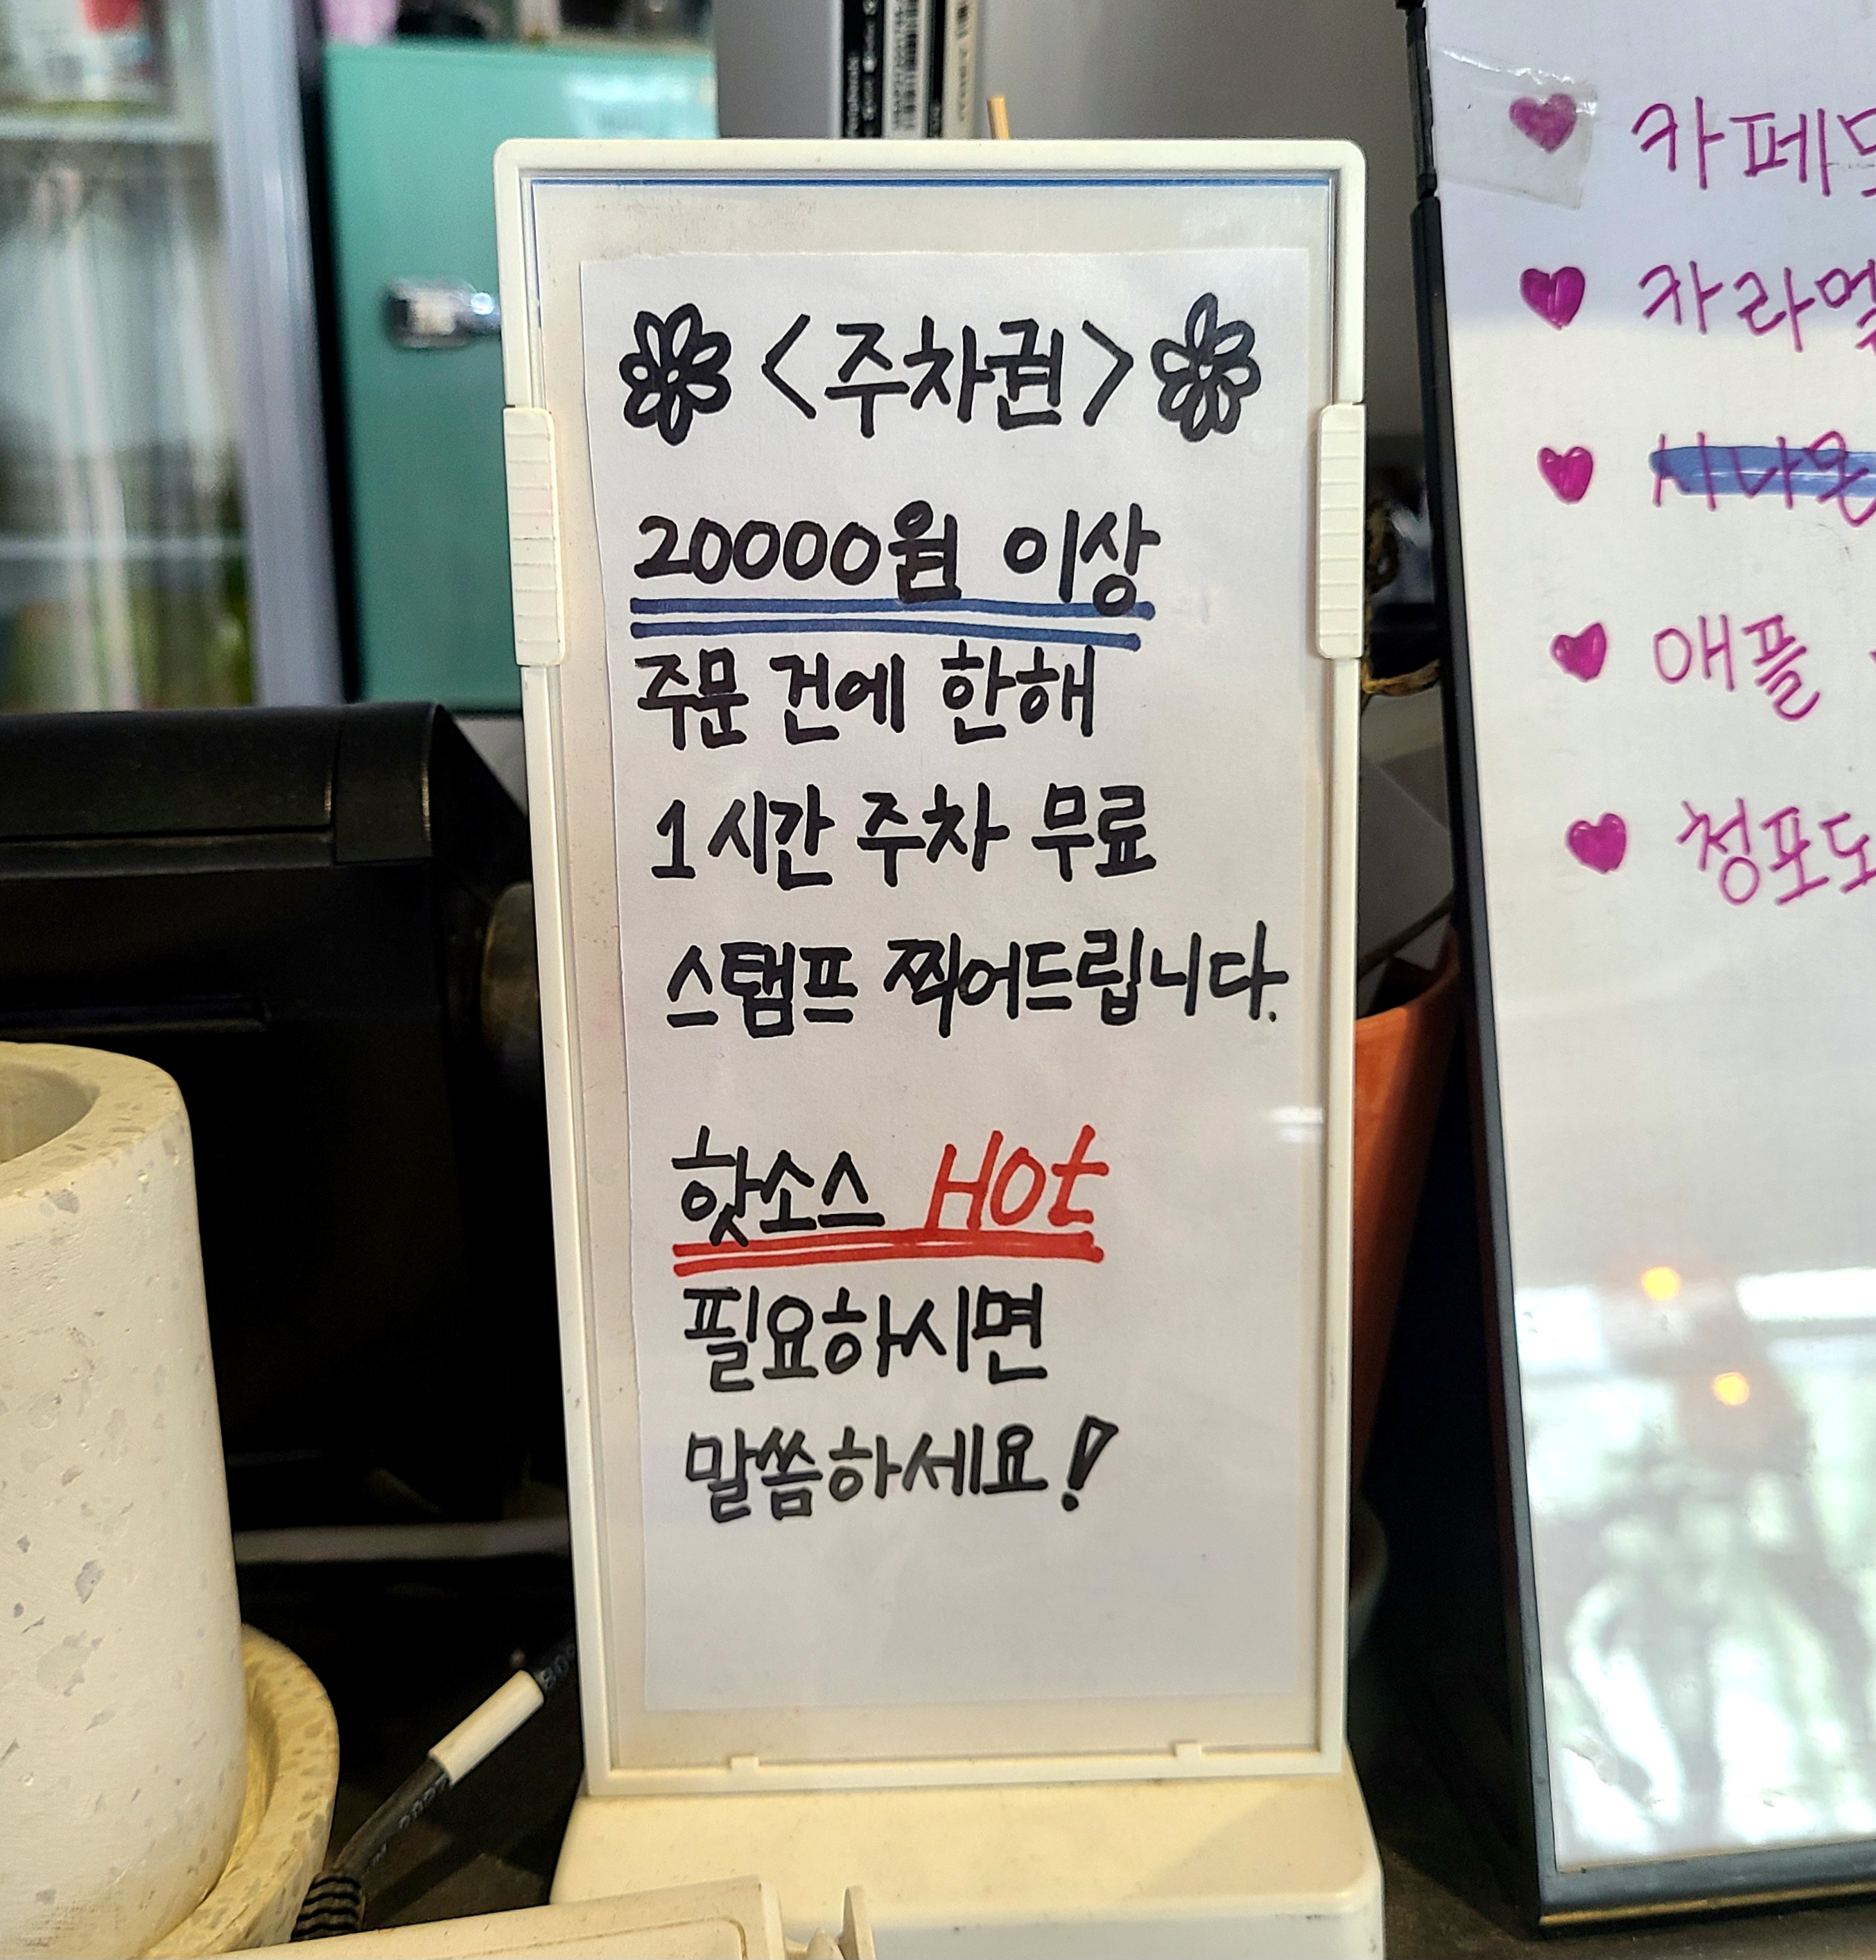 <주차권>
20000원 이상
주문 건에 한해
1시간 주차 무료
스탬프 찍어드립니다.
핫소스 Hot
필요하시면
말씀하세요!
애플